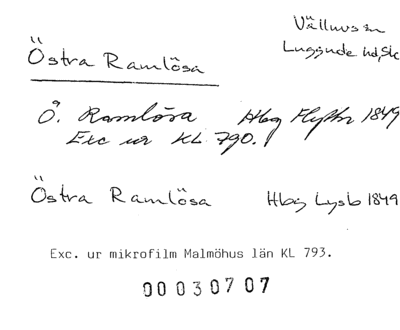 Östra Ramlösa
Luggude hd, Sk
Ö. Ramlösa Hbg Flyttn 1849
Exc ur KL 790.
Östra Ramlösa Hbg Lysb 1849
Exc. ur mikrofilm Malmöhus län KL 793.
00030707